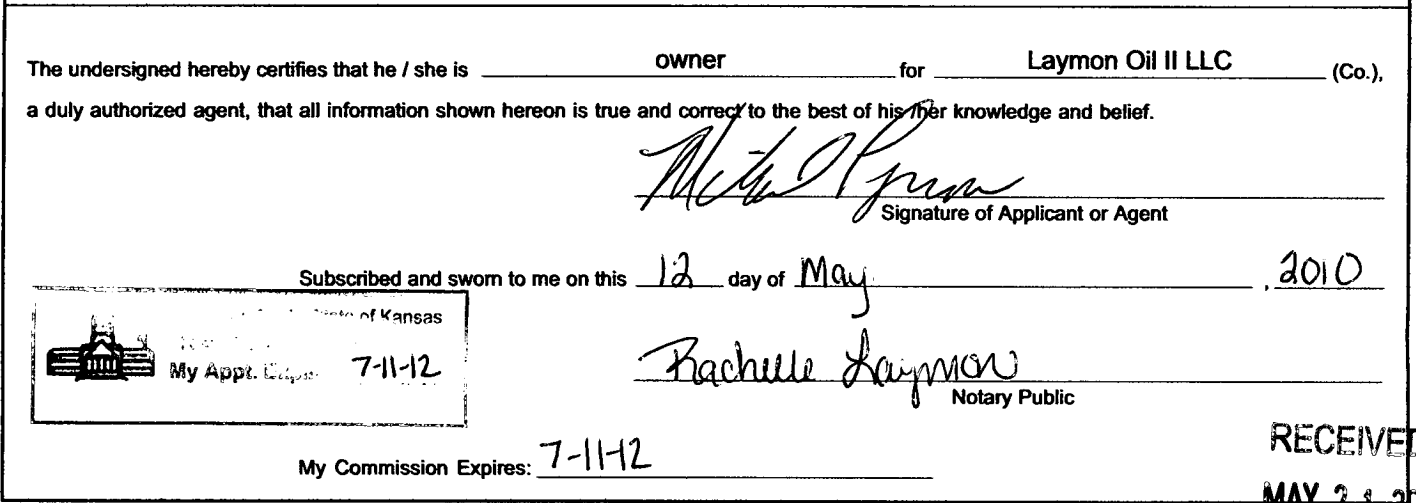 The undersigned hereby certifies that he / she is owner for Laymon Oil II LLC (Co.),
a duly authorized agent, that all information shown hereon is true and correct to the best of his/her knowledge and belief.
Signature of Applicant or Agent
Subscribed and sworn to me on this 12 day of May , 2010
State of Kansas
My Appt. 7-11-12
Rachelle Laymon
Notary Public
My Commission Expires: 7-11-12
RECEIVED
MAY